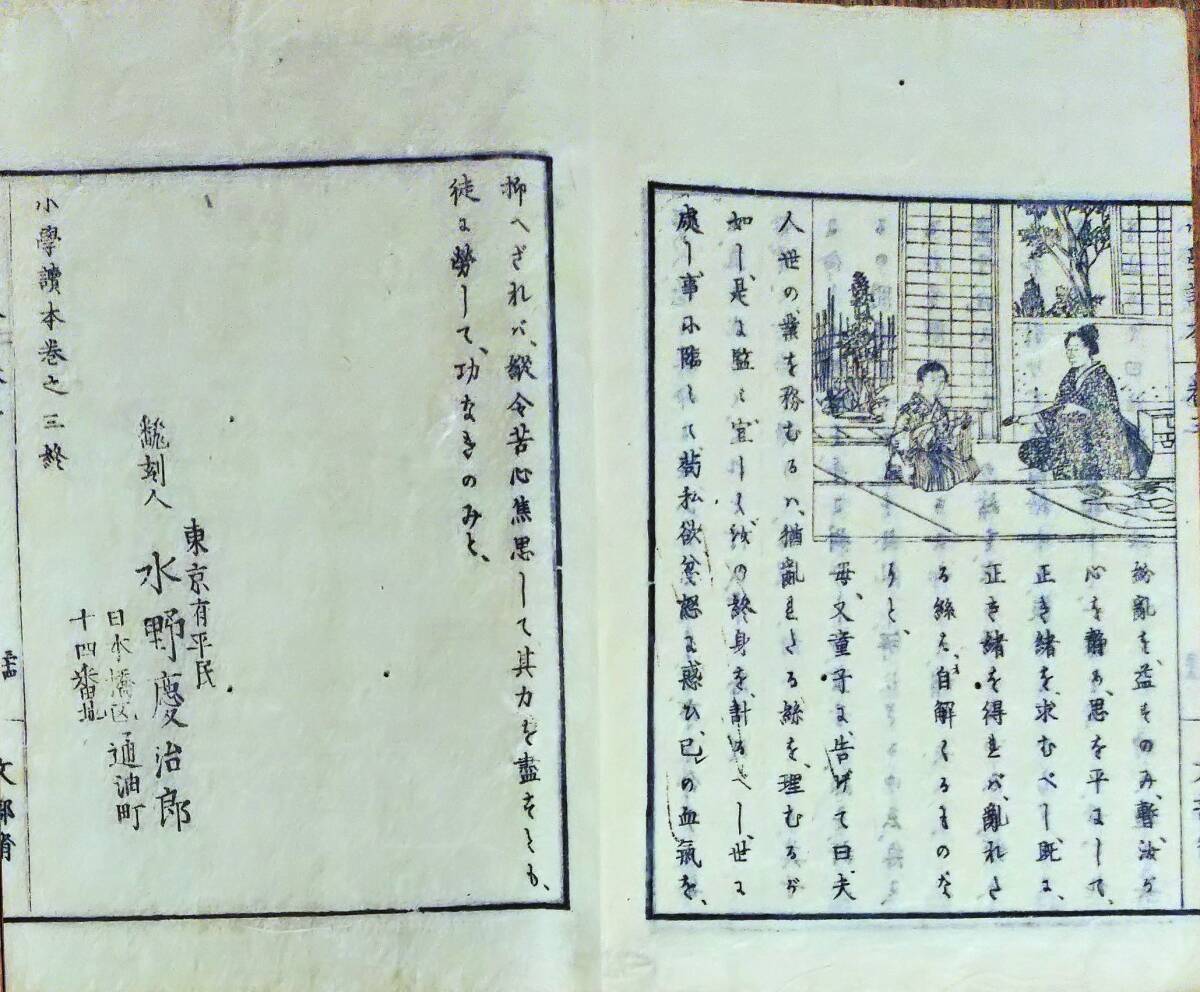 紛亂を、益すのみ、暫、汝が
心を靜め、思を平にして、
正き緒を、求むべし、既に、
正き緒を得れば、亂れた
る絲は、自解くるものな
りと、
母、又童子に、告げて曰、夫
人世の、業を務むるハ、猶亂れたる絲を、理むるが
如し、是に監み宜しく汝の終身を、計るべし、世に
處し事に臨みて、苟私欲忿怒に惑ひ、己の血氣を、
抑へざれバ、縱令苦心焦思して、其力を盡すとも、
徒に勞して、功なきのみと、
小學讀本卷之三終
飜刻人
東京府平民
水野慶治郎
日本橋区通油町
十四番地
文部省